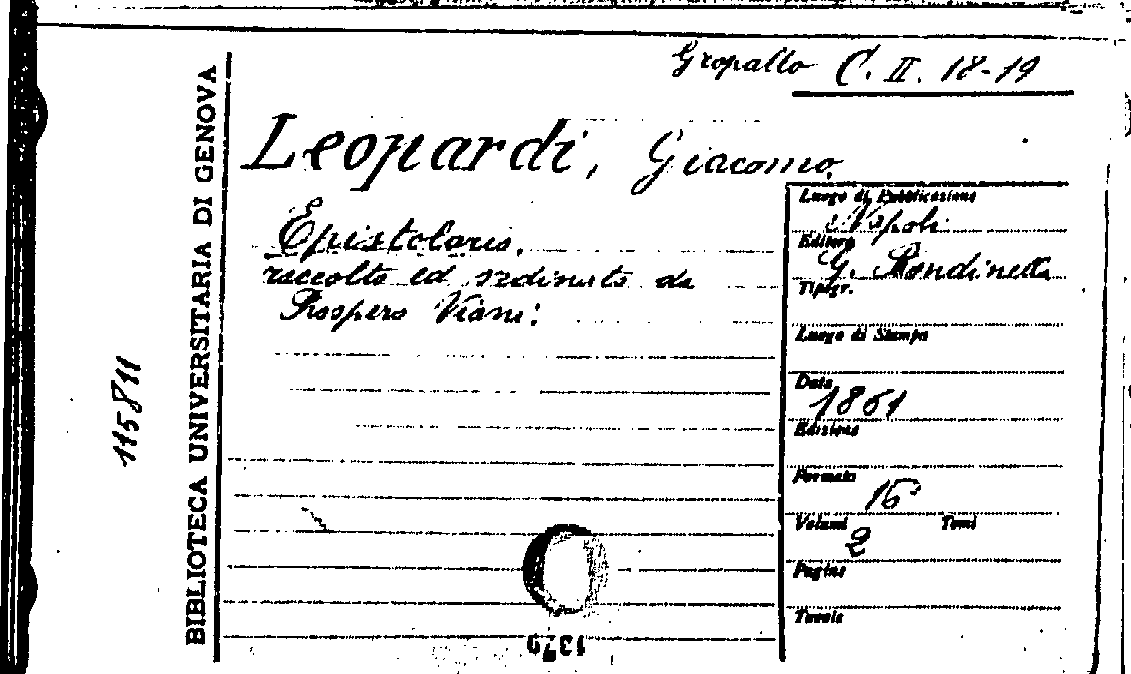 Gropallo C. II. 18-19
BIBLIOTECA UNIVERSITARIA DI GENOVA
115811
Leopardi, Giacomo
Epistolario.
raccolto ed ordinato da
Prospero Viani.
Luogo di Pubblicazione
Napoli
Editore
G. Rondinella
Tipogr.
Luogo di Stampa
Data
1861
Edizione
Formato
16°
Volumi Tomi
2
Pagine
Tavole
1379